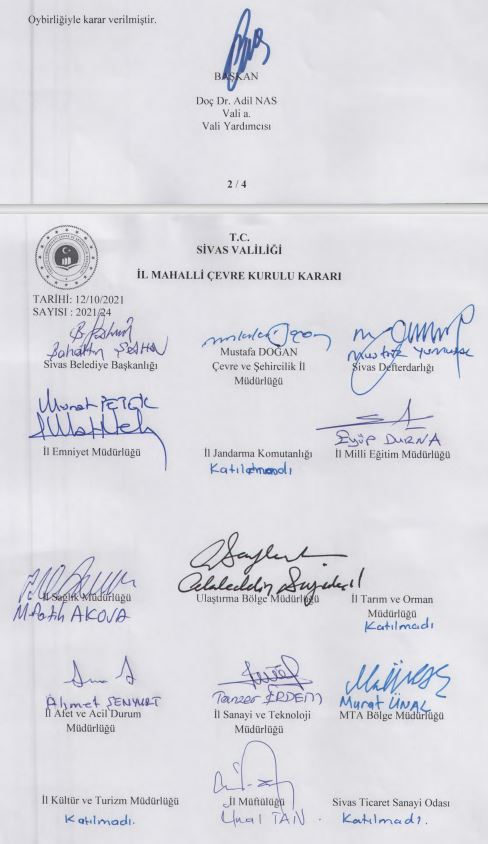 Oybirliğiyle karar verilmiştir.
BAŞKAN
Doç Dr. Adil NAS
Vali a.
Vali Yardımcısı
2 / 4
T.C.
SİVAS VALİLİĞİ
İL MAHALLİ ÇEVRE KURULU KARARI
TARİHİ: 12/10/2021
SAYISI : 2021/24
Sivas Belediye Başkanlığı
Mustafa DOĞAN
Çevre ve Şehircilik İl
Müdürlüğü
Sivas Defterdarlığı
Murat PETEK
İl Emniyet Müdürlüğü
İl Jandarma Komutanlığı
Katılmadı
Eyüp DURNA
İl Milli Eğitim Müdürlüğü
İl Sağlık Müdürlüğü
M Fatih AKOVA
Ulaştırma Bölge Müdürlüğü
İl Tarım ve Orman
Müdürlüğü
Katılmadı
Ahmet ŞENYURT
İl Afet ve Acil Durum
Müdürlüğü
Tanzer ERDEM
İl Sanayi ve Teknoloji
Müdürlüğü
Murat ÜNAL
MTA Bölge Müdürlüğü
İl Kültür ve Turizm Müdürlüğü
Katılmadı.
İl Müftülüğü
Ünal TAN
Sivas Ticaret Sanayi Odası
Katılmadı.